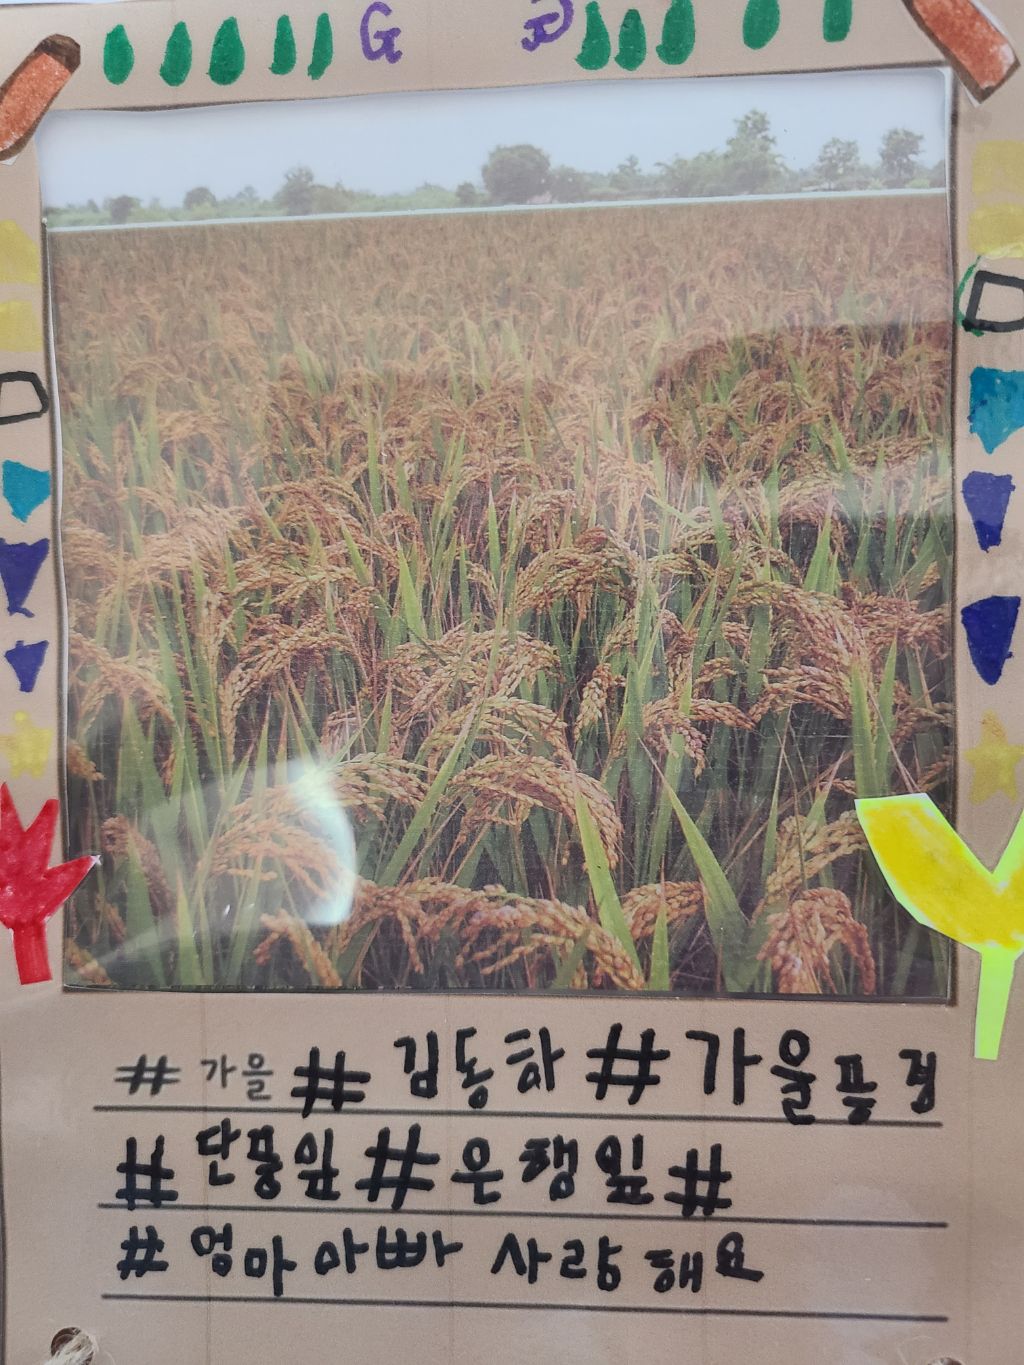 G G
D D
#가을 #김동하 #가을풍경
#단풍잎 #은행잎 #
#엄마 아빠 사랑해요